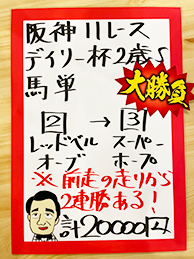 阪神11レース
デイリー杯2歳S
馬単
大勝負
2 → 3
レッドベル スーパー
オーブ ホープ
※前走の走りから
2連勝ある!
計20000円